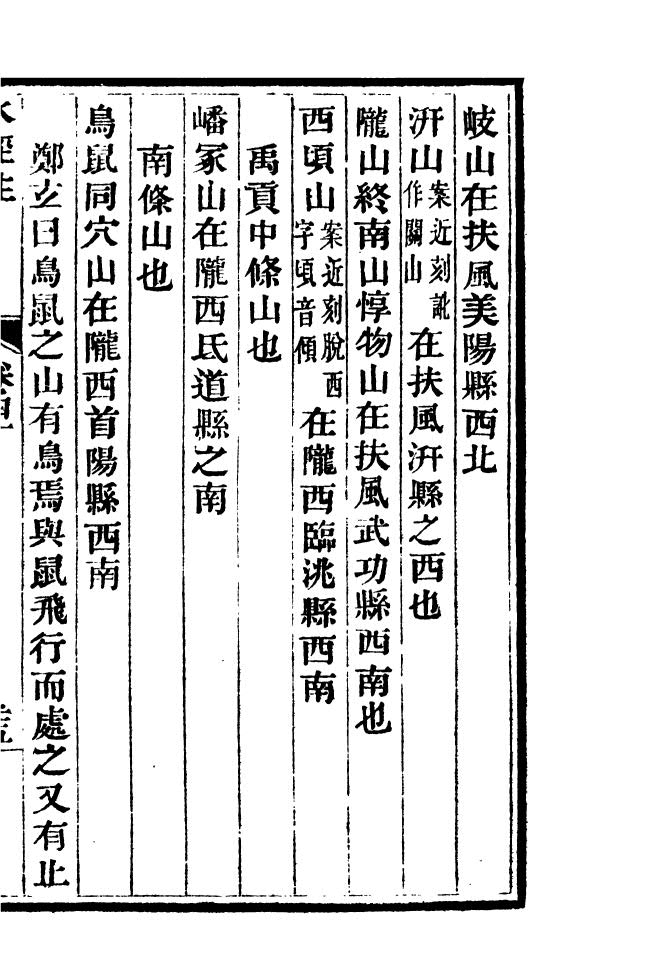 岐山在扶風美陽縣西北
汧山案近刻訛作關山在扶風汧縣之西也
隴山終南山惇物山在扶風武功縣西南也
西頃山案近刻脫西字頃音傾在隴西臨洮縣西南
禹貢中條山也
嶓冢山在隴西氐道縣之南
南條山也
鳥鼠同穴山在隴西首陽縣西南
鄭玄曰鳥鼠之山有鳥焉與鼠飛行而處之又有止
水經注
卷四十